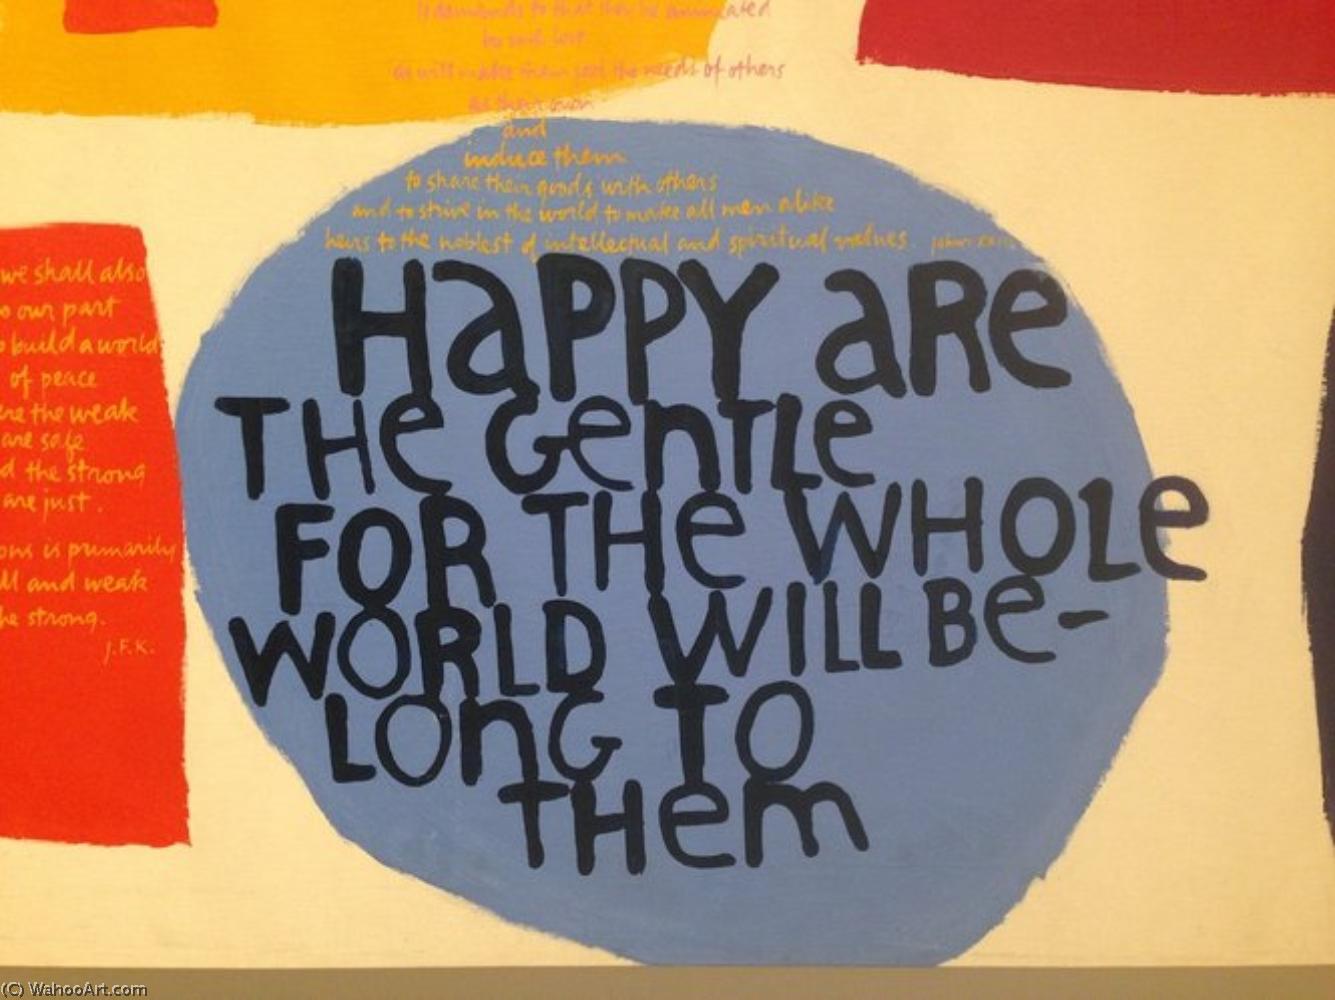 it demands to that they be animated
by such love
as will make them feel the needs of others
as their own
and
induce them
to share their goods with others
and to strive in the world to make all men alike
heirs to the noblest of intellectual and spiritual values. John XXIII
HaPPY aRe
THe GenTLe
FOR THe WHOLe
WORLD WILL Be-
LOnG TO
THem
we shall also
o our part
o build a world
of peace
ere the weak
are safe
d the strong
are just.
ons is primarily
ll and weak
he strong.
J.F.K.
(C) WahooArt.com